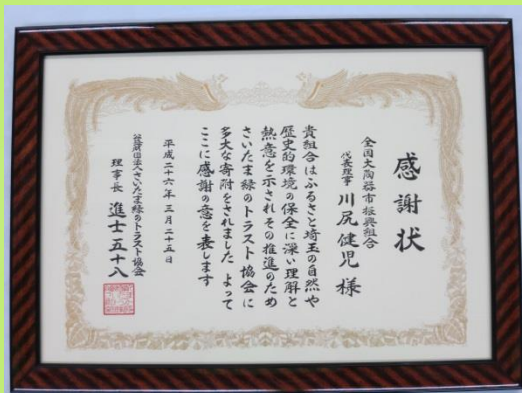 感謝状
全国大陶器市振興組合
代表理事 川尻健児 様
貴組合はふるさと埼玉の自然や
歴史的環境の保全に深い理解と
熱意を示されその推進のため
さいたま緑のトラスト協会に
多大な寄附をされました よって
ここに感謝の意を表します
平成二十六年 三月二十五日
公益財団法人さいたま緑のトラスト協会
理事長 進士五十八